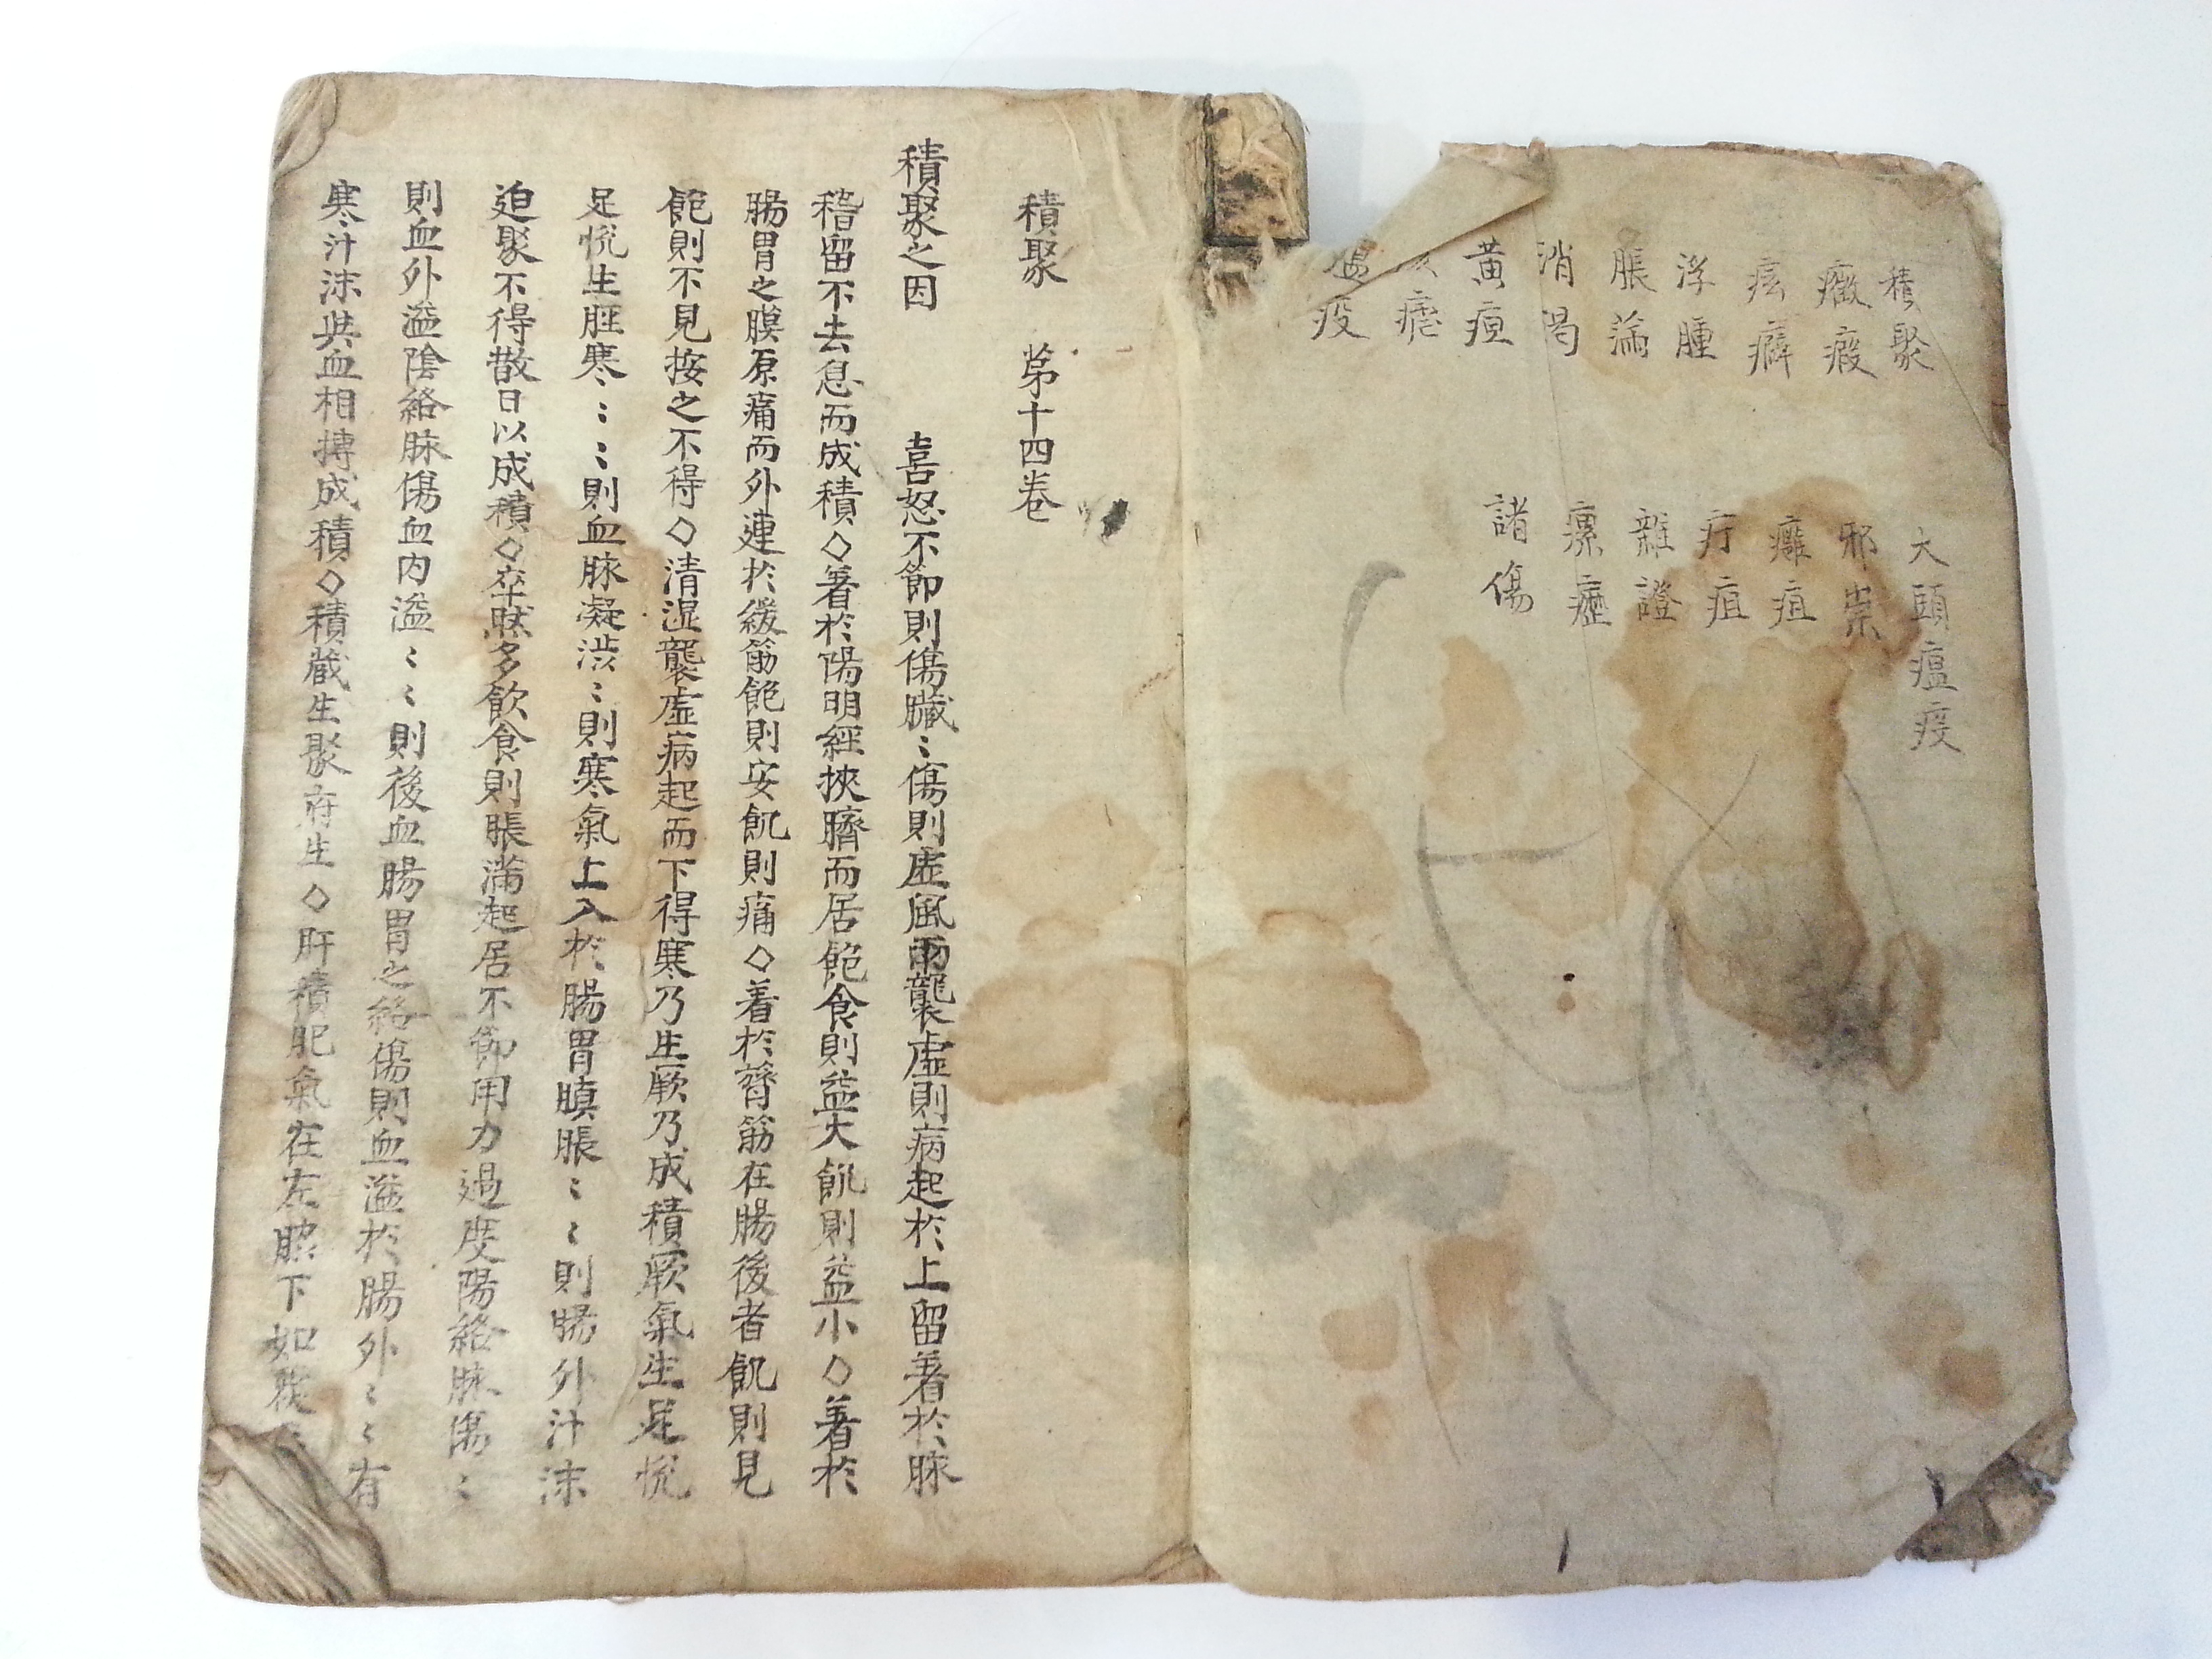 積聚
癥瘕
痃癖
浮腫
脹滿
消渴
黄疸
瘧
瘟疫
大頭瘟疫
邪祟
癰疽
疔疽
雜證
瘰癧
諸傷
積聚 苐十四卷
積聚之因 喜怒不節則傷臓〻傷則虚風雨襲虚則病起於上留着於脉
稽留不去息而成積◇着於陽明經挾臍而居飽食則益大飢則益小◇着於
腸胃之膜原痛而外連於緩筋飽則安飢則痛◇着於膂筋在腸後者飢則見
飽則不見按之不得◇清湿襲虚病起而下得寒乃生厥乃成積厥氣生足悗
足悗生脛寒〻〻則血脉凝渋〻則寒氣上入於腸胃䐜脹〻〻則腸外汁沫
迫聚不得散日以成積◇卒然多飲食則脹滿起居不節用力過度陽絡脉傷〻
則血外溢陰絡脉傷血内溢〻〻則後血腸胃之絡傷則血溢於腸外〻〻有
寒汁沫與血相搏成積◇積蔵生聚府生◇肝積肥氣在左脇下如